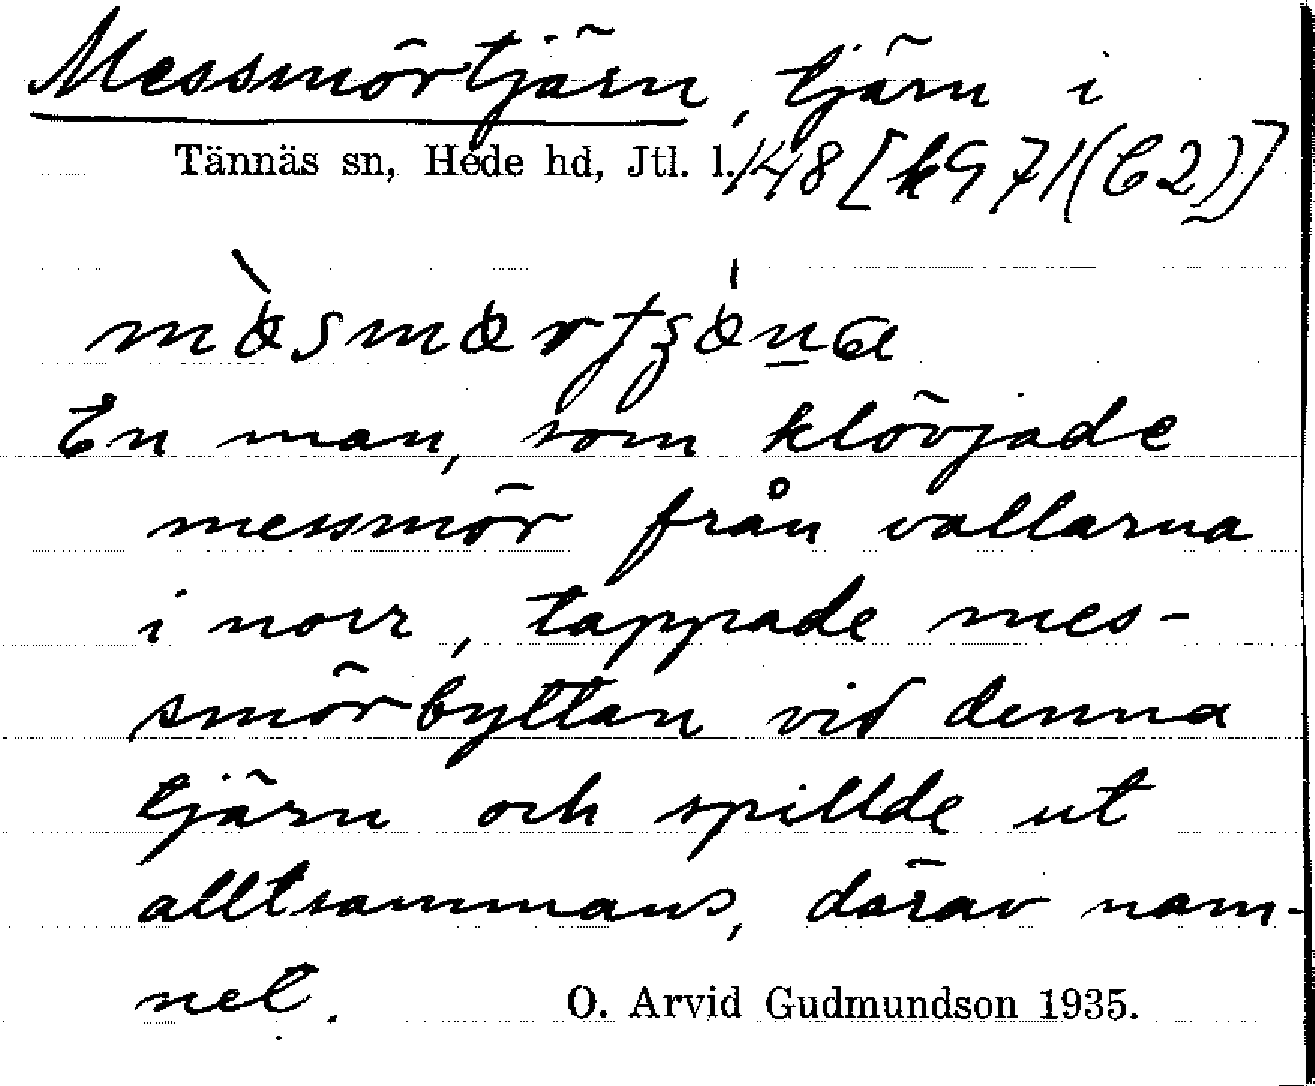 Messmörtjärn, tjärn i
Tännäs sn, Hede hd, Jtl. l. 148 [k971(C2)]
En man, som klövjade
messmör från vallarna
i norr, tappade mes-
smörbyttan vid denna
tjärn och spillde ut
alltsammans, därav nam-
net.
O. Arvid Gudmundson 1935.